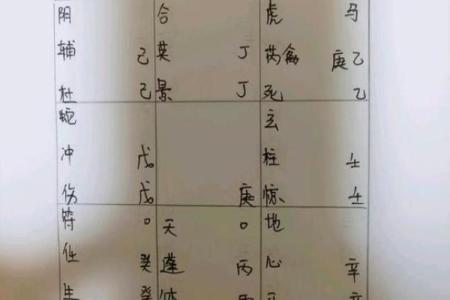 阴 合 虎 马
辅 己 英 丁 芮禽 庚乙
杜 己 景 丁 死 乙
蛇 玄
冲 戊 柱 壬
伤 戊 庚 惊 壬
符 天 地
任 癸 蓬 丙 心 辛
生 癸 休